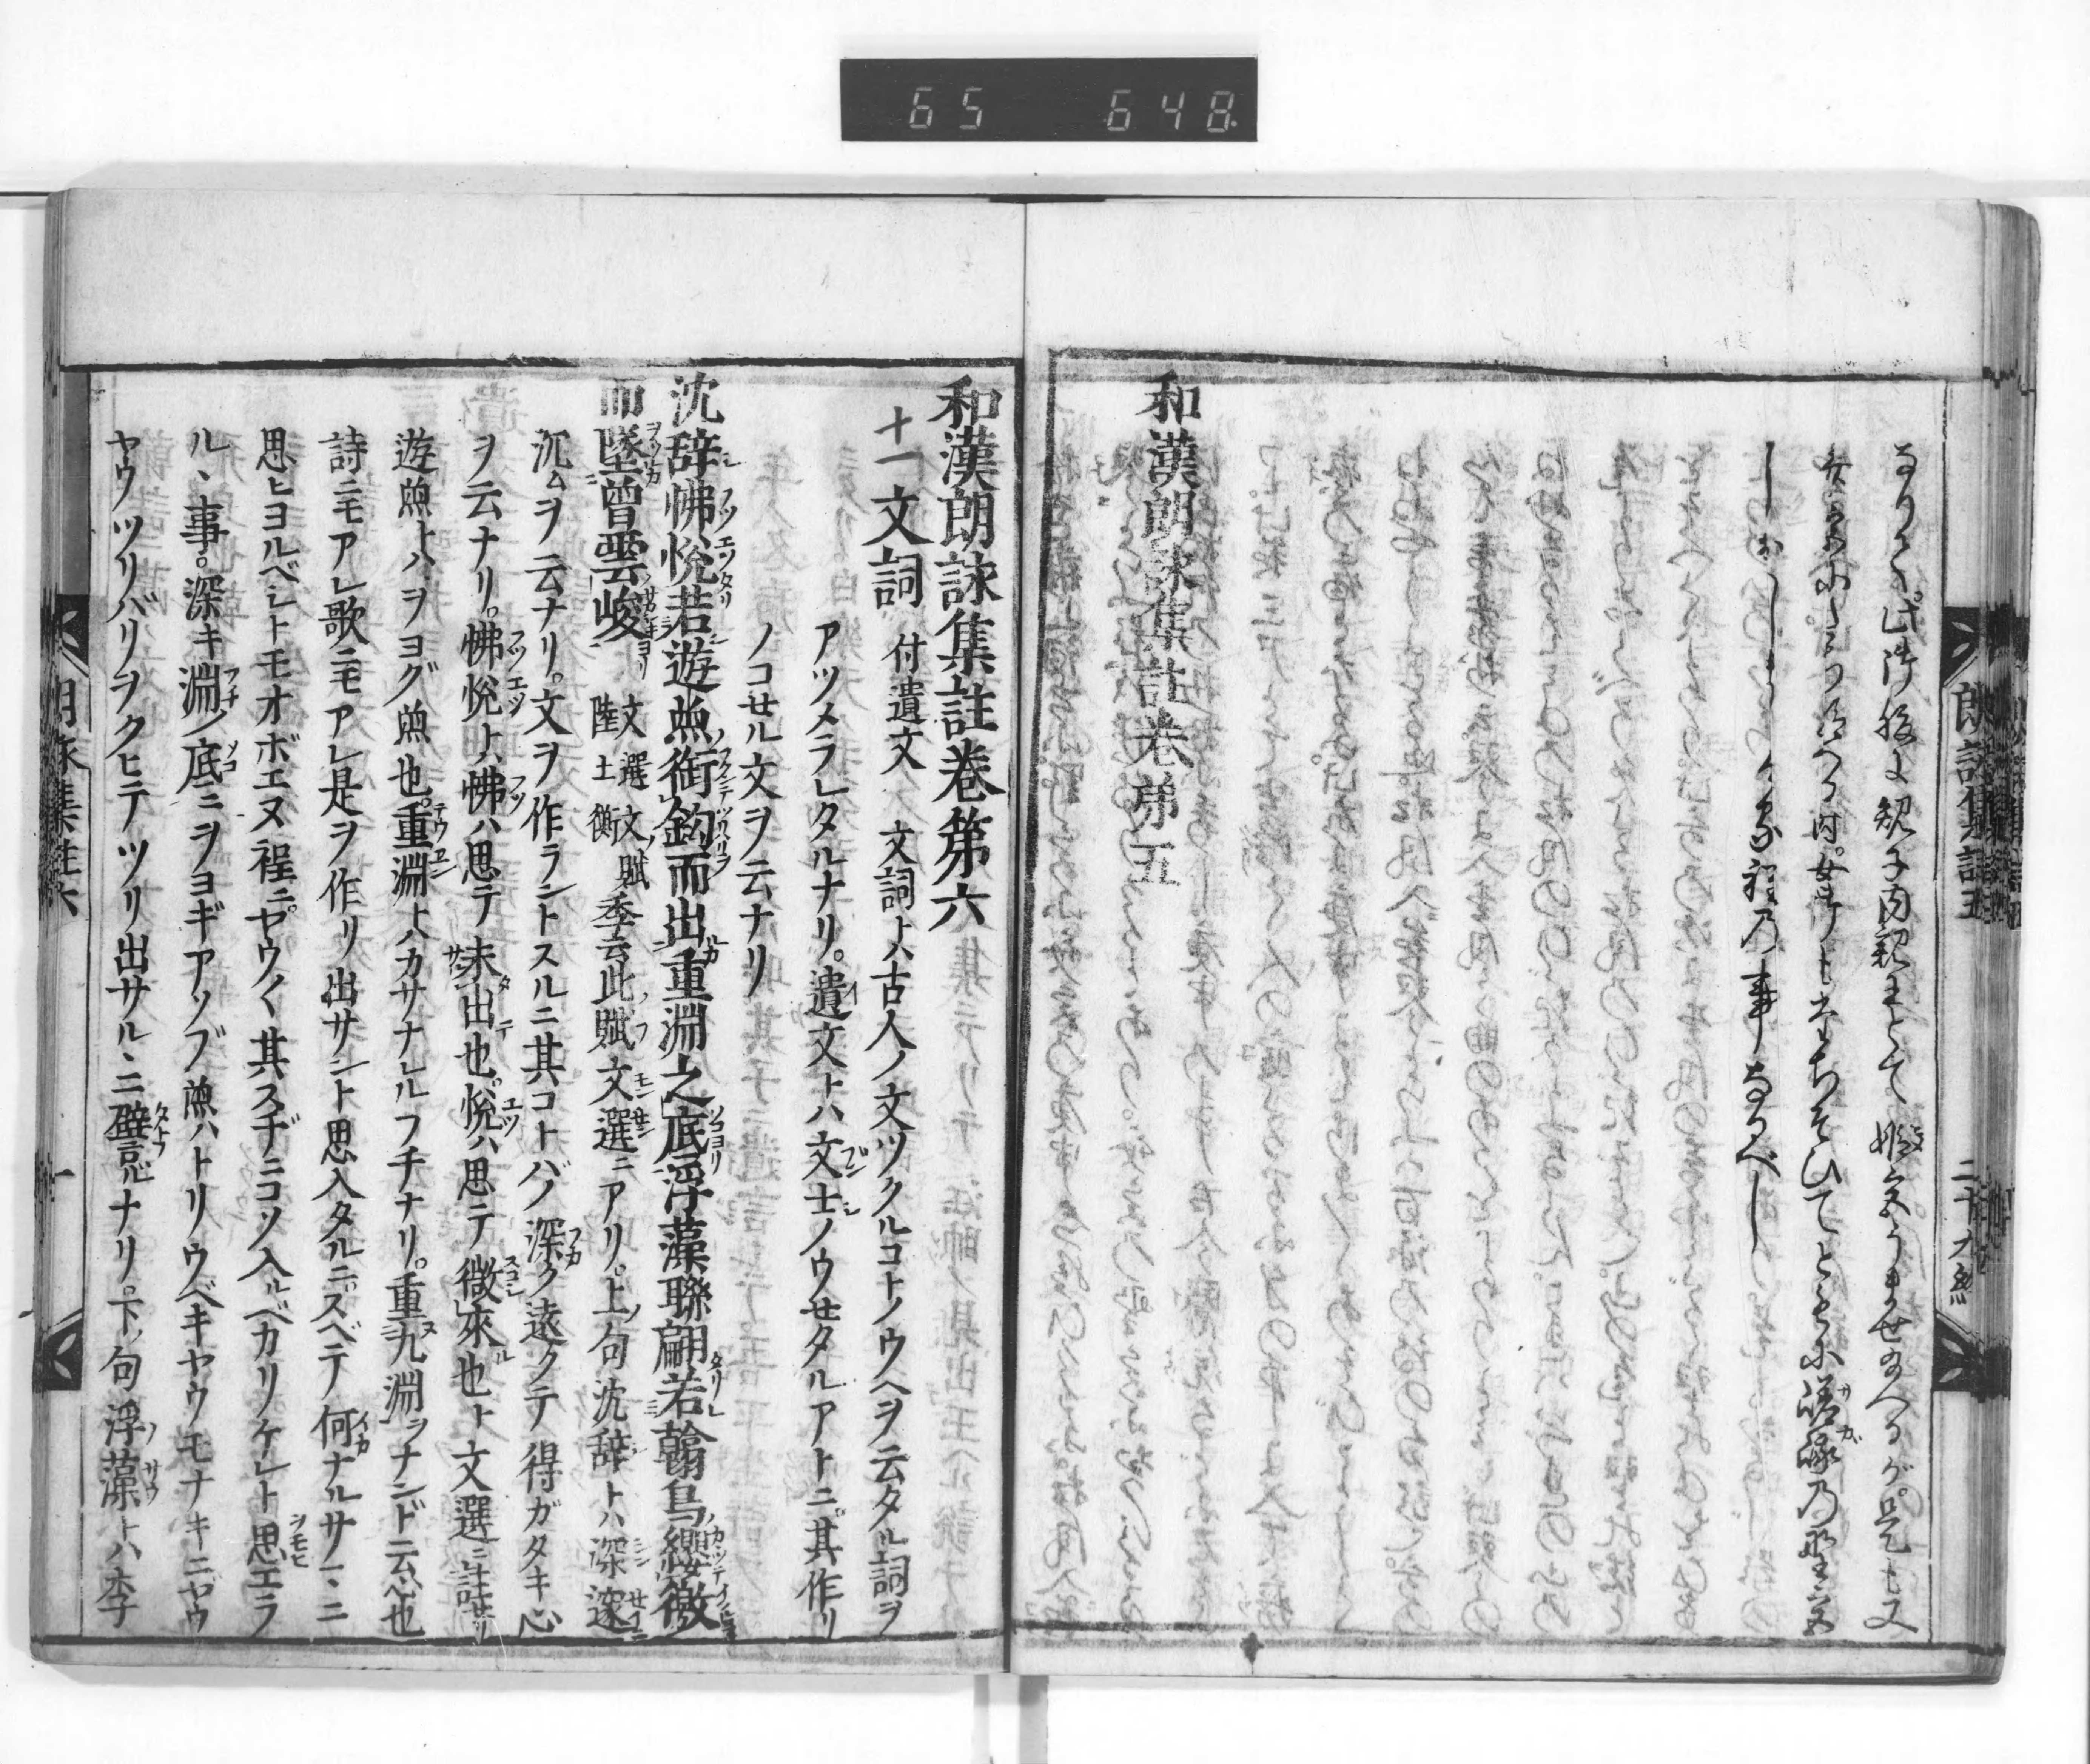 65 648
なりて、此御後に規子内親王とて
嵯峨乃野宮
程乃事なるべし
和漢朗詠集註卷第五
朗詠集註五 二十九終
和漢朗詠集註卷第六
十一文詞 付遺文 文詞トハ古人ノ文ツクルコトノウヘヲ云タル詞ヲ
アツメラレタルナリ。遺文トハ文士ノウセタルアトニ其作リ
ノコせル文ヲ云ナリ
沈辞怫悅若遊魚銜鈎而出重淵之底浮藻聯翩若翰鳥纓徼
而墜曾雲峻 文選文賦 陸士衡 季云此賦文選ニアリ。上ノ句沈辞トハ深邃
沉ムヲ云ナリ。文ヲ作ラントスルニ其コトバノ深ク遠クテ得ガタキ心
ヲ云ナリ。怫悅トハ怫ハ思テ未出也。悅ハ思テ微來也ト文選ニ註せリ
遊魚トハヲヨグ魚也。重淵トハカサナレルフチナリ。重九淵ヲナンド云心也
詩ニモアレ歌ニモアレ是ヲ作リ出サント思入タルニ。スベテ何ナルサマニ
思ヒヨルベシトモオボエヌ程ニ。ヤウ〱其スヂニコソ入ルベカリケレト思エラ
ルヽ事。深キ淵ノ底ニヲヨギアソブ魚ハトリウベキヤウモナキニヤウ
ヤウツリバリヲクヒテツリ出サルヽニ譬ルナリ。下ノ句浮藻トハ李
朗詠集註六 一